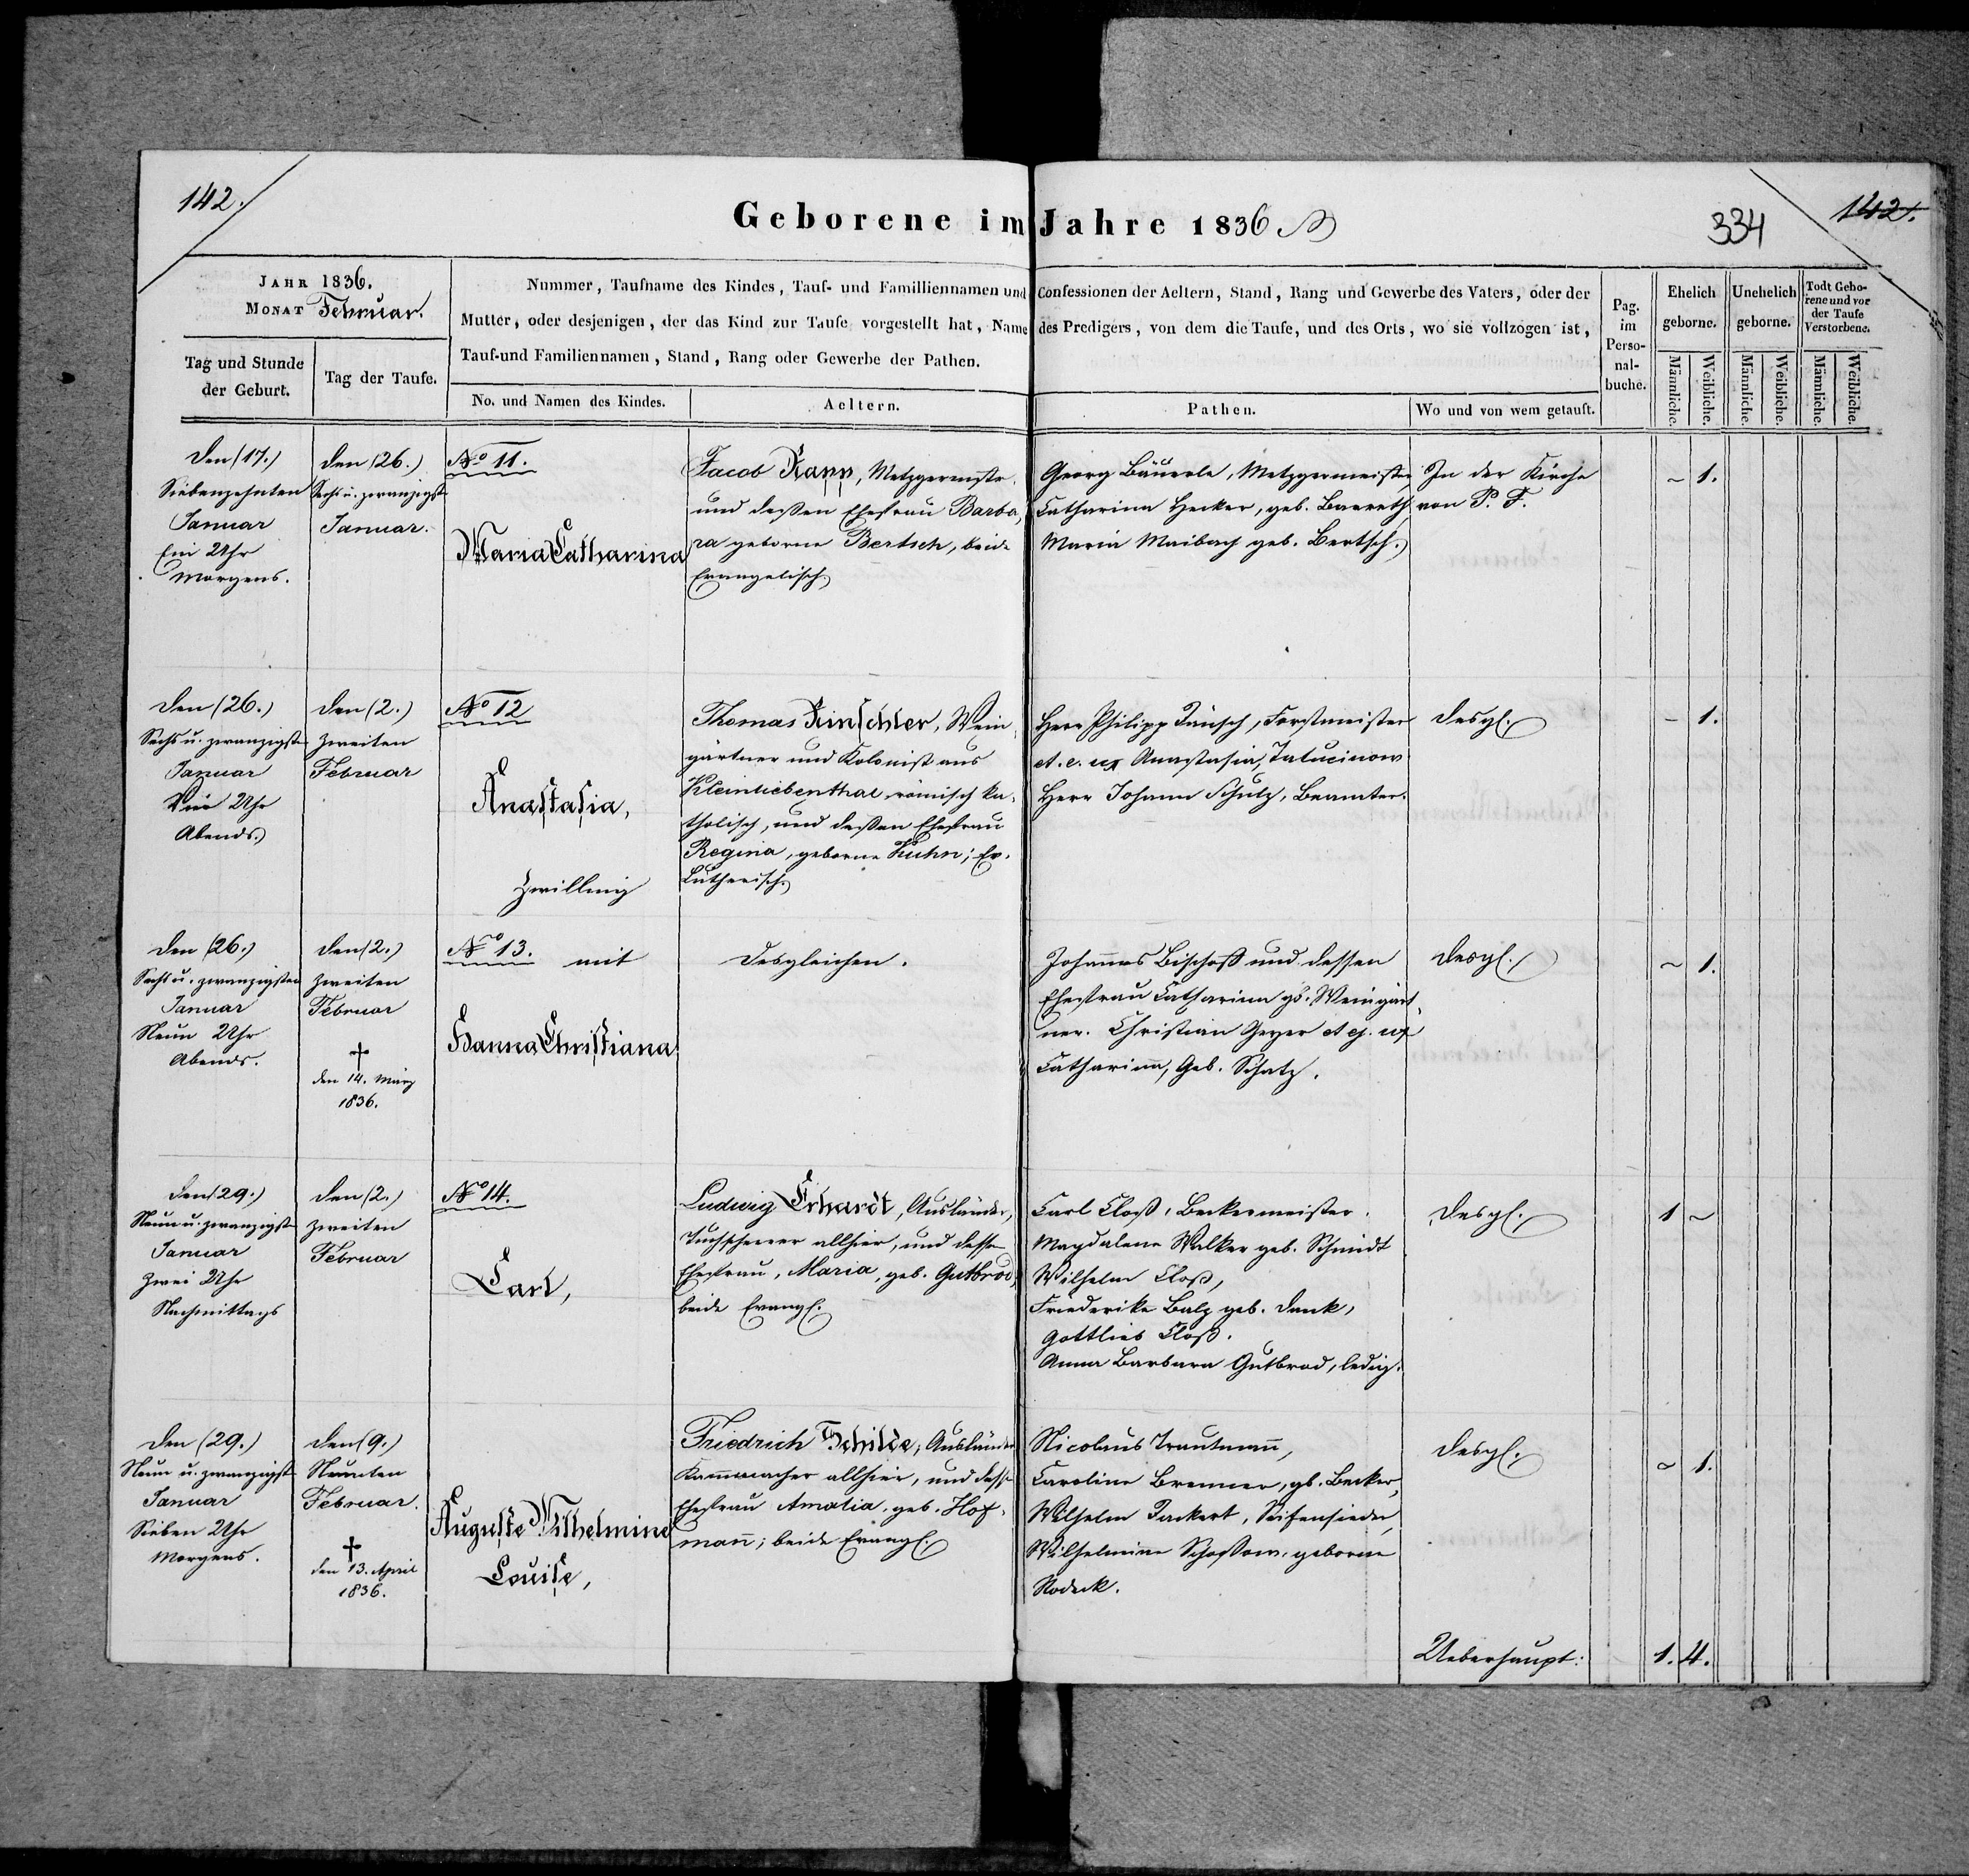 142.
Geborene im Jahre 1836
334
142.
JAHR 1836.
MONAT Februar.
Tag und Stunde der Geburt.
Tag der Taufe.
Nummer, Taufname des Kindes, Tauf- und Familliennamen und Confessionen der Aeltern, Stand, Rang und Gewerbe des Vaters, oder der
Mutter, oder desjenigen, der das Kind zur Taufe vorgestellt hat, Name des Predigers, von dem die Taufe, und des Orts, wo sie vollzogen ist,
Tauf-und Familiennamen, Stand, Rang oder Gewerbe der Pathen.
No. und Namen des Kindes.
Aeltern.
Pathen.
Wo und von wem getauft.
Pag. im Perso-nal-buche.
Ehelich geborne.
Unehelich geborne.
Todt Gebo-rene und vor der Taufe Verstorbene.
Männliche.
Weibliche.
Männliche.
Weibliche.
Männliche.
Weibliche.
den (17.)
Siebenzehnten
Januar
Ein Uhr
Morgens.
den (26.)
Sechs u. zwanzigst
Januar.
No 11.
Maria Catharina
Jacob Kapp, Metzgermstr.
und dessen Ehefrau Barba,
ra geborne Bertsch, beide
Evangelisch
Georg Bäuerle, Metzgermeister
Catharina Hecker, geb. Banreth
Maria Maibach geb. Bertsch.
In der Kirche
von P. F.
~ 1.
den (26.)
Sechs u. zwanzigste
Januar
Vier Uhr
Abends.
den (2.)
Zweiten
Februar
No 12
Anastasia,
Zwilling
Thomas Kinschler, Wein,
gärtner und Kolonist aus
Kleinliebenthal, römisch ka,
tholisch, und dessen Ehefrau
Regina, geborne Kuhn; Ev.
Lutherisch
Herr Philipp Jänsch, Forstmeister
et. e. ux Anastasia, Tatucinow
Herr Johann Schulz, Beamter.
desgl.
- 1.
den (26.)
Sechs u. zwanzigsten
Januar
Neun Uhr
Abends.
den (2.)
Zweiten
Februar
†
den 14. März
1836.
No 13. mit
Hanna Christiana
Desgleichen.
Johannes Bischoff und dessen
Ehefrau Catharina gb. Weingärt,
ner. Christian Geyer et ej. ux
Catharina, Geb. Schatz.
desgl.
~ 1.
den (29.)
Neun u. zwanzigst
Januar
Zwei Uhr
Nachmittags
den (2.)
Zweiten
Februar
No 14.
Carl,
Ludwig Erhardt, Ausländer,
Tuchscherer allhier, und dessen
Ehefrau, Maria, geb. Gutbrod,
beide Evangl.
Carl Closs, Beckermeister.
Magdalena Walker geb. Schmidt
Wilhelm Closs,
Friederike Balz geb. Denk,
Gottlieb Closs.
Anna Barbara Gutbrod, ledig.
desgl.
1 ~
den (29.)
Neun u. zwanzigst
Januar
Sieben Uhr
Morgens.
den (9.)
Neunten
Februar.
†
den 13. April
1836.
Auguste Wilhelmine
Louise,
Friedrich Schilde, Ausländer
Kammacher allhier, und dessen
Ehefrau Amalia, geb. Hof,
mann; beide Evangl.
Nicolaus Trautmann,
Caroline Brenner, gb. Becker,
Wilhelm Tackert, Seifensieder,
Wilhelmine Schossow, geborne
Rodeck.
desgl.
~ 1.
Ueberhaupt:
1. 4.